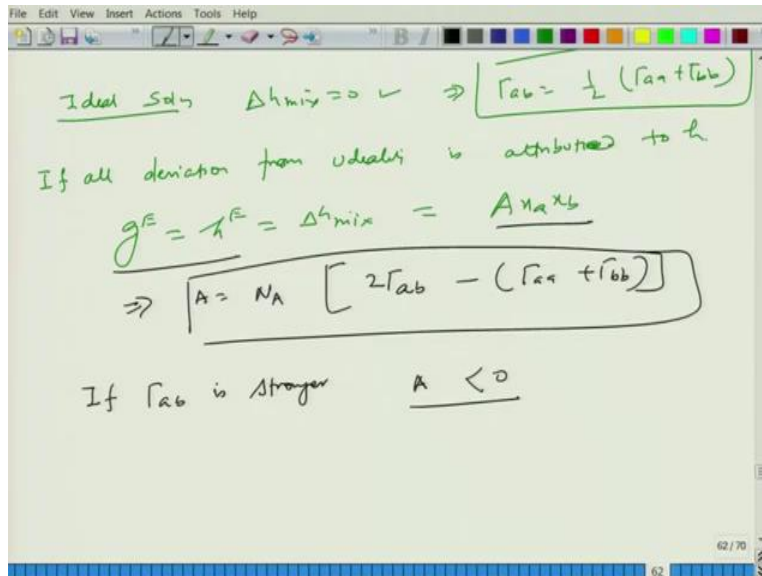 File Edit View Insert Actions Tools Help
Ideal Soln Δhmix=0 ✓ ⇒ Γab = 1/2 (Γaa + Γbb)
If all deviation from ideality is attributed to h
g^E = h^E = Δhmix = A xa xb
⇒ A = NA [2Γab - (Γaa + Γbb)]
If Γab is stronger A < 0
62/70
62